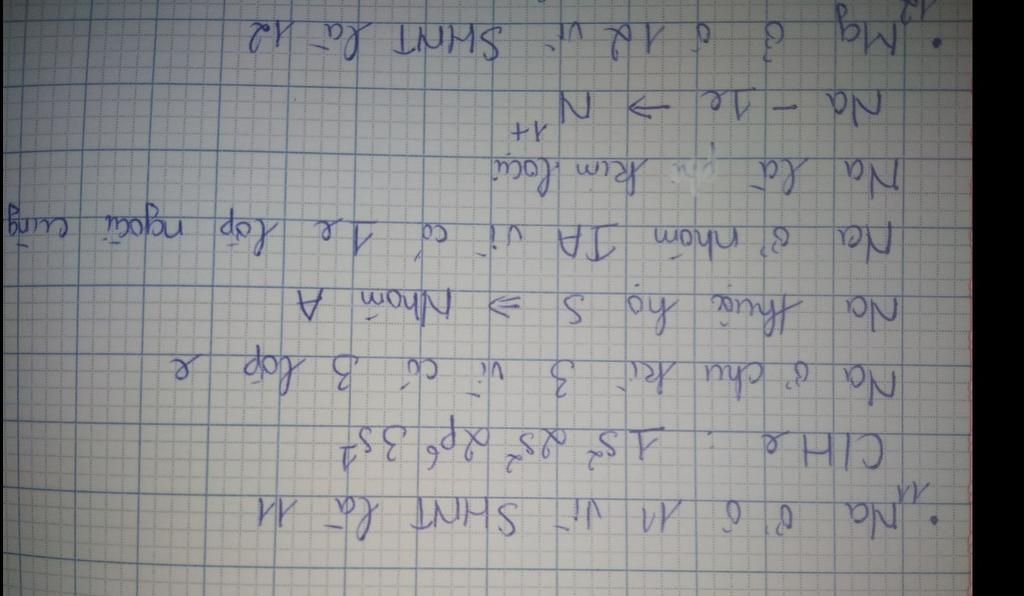 • ₁₁Na ở ô 11 vì SHNT là 11
CHe : 1s² 2s² 2p⁶ 3s¹
Na ở chu kì 3 vì có 3 lớp e
Na thuộc họ s ⇒ Nhóm A
Na ở nhóm IA vì có 1e lớp ngoài cùng
Na là kim loại
Na - 1e → N¹⁺
• ₁₂Mg ở ô 12 vì SHNT là 12